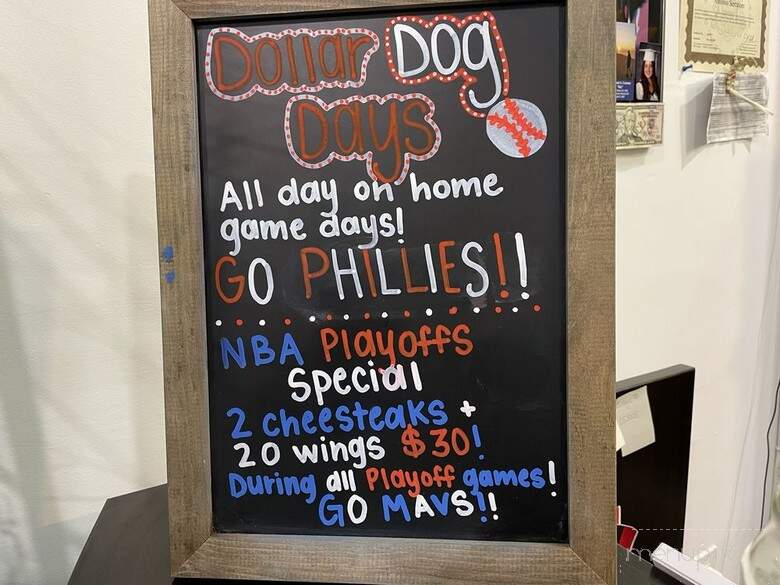 Dollar Dog
Days
All day on home
game days!
GO PHILLIES!!
NBA Playoffs
Special
2 cheesteaks +
20 wings $30!
During all Playoff games!
GO MAVS!!